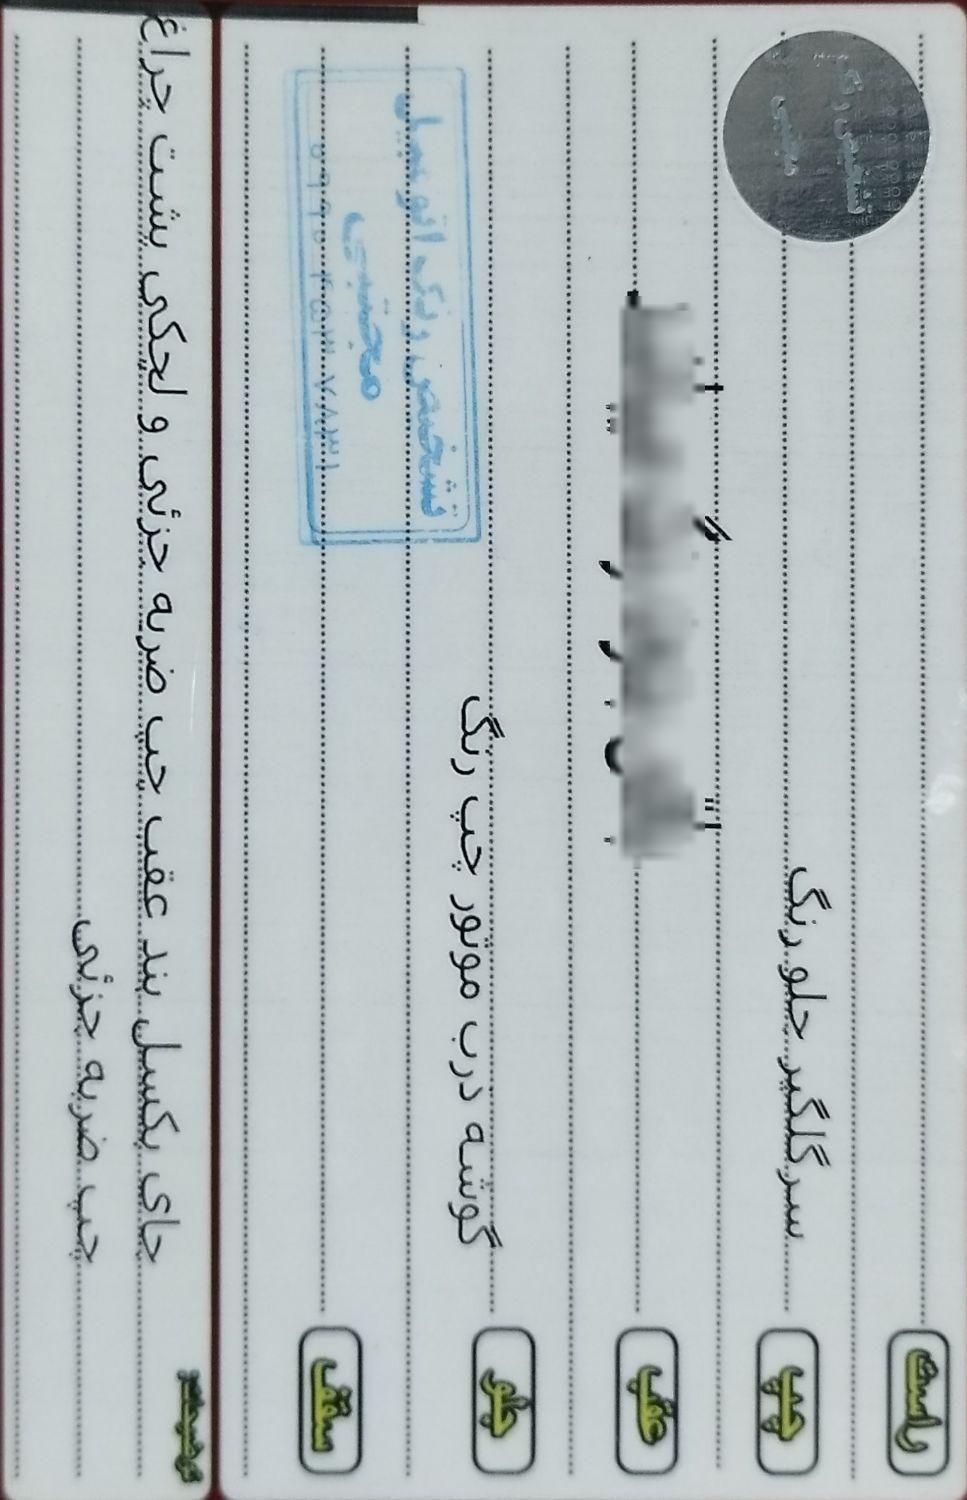 تشخیص رنگ
مجتبی
راست
چپ
سر گلگیر جلو رنگ
عقب
جلو
گوشه درب موتور چپ رنگ
سقف
تشخیص رنگ اتومبیل
مجتبی
توضیحات
جای بکسل بند عقب چپ ضربه جزئی و لچکی پشت چراغ
چپ ضربه جزئی